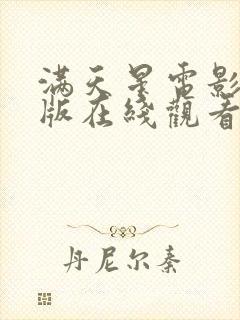 满天星电影
版在线觀看
丹尼尔秦